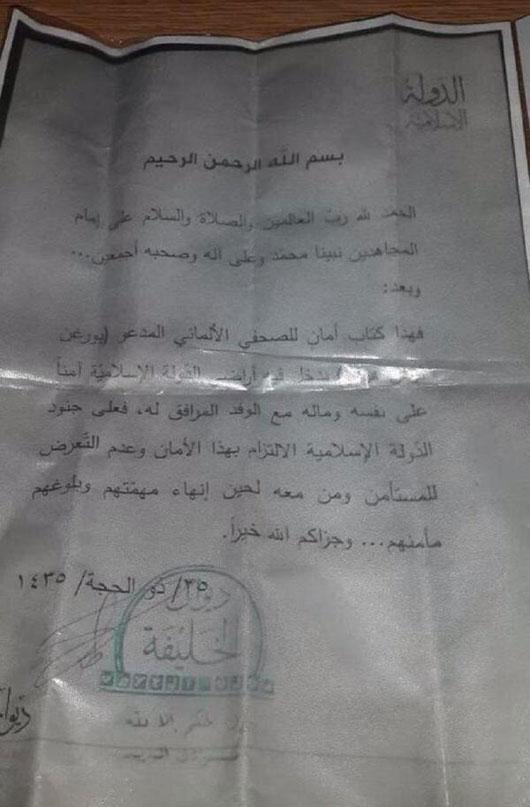 الدولة
الإسلامية
بسم الله الرحمن الرحيم
الحمد لله ربّ العالمين والصلاة والسلام على إمام
المجاهدين نبينا محمد وعلى آله وصحبه أجمعين...
وبعد:
فهذا كتاب أمان للصحفي الألماني المدعو (يورغن
يدخل فيه أراضي الدّولة الإسلاميّة آمناً
على نفسه وماله مع الوفد المرافق له، فعلى جنود
الدّولة الإسلامية الالتزام بهذا الأمان وعدم التّعرض
للمستأمن ومن معه لحين إنهاء مهمّتهم وبلوغهم
مأمنهم... وجزاكم الله خيراً.
٢٥/ ذو الحجة/ ١٤٣٥
ديوان
الخليفة